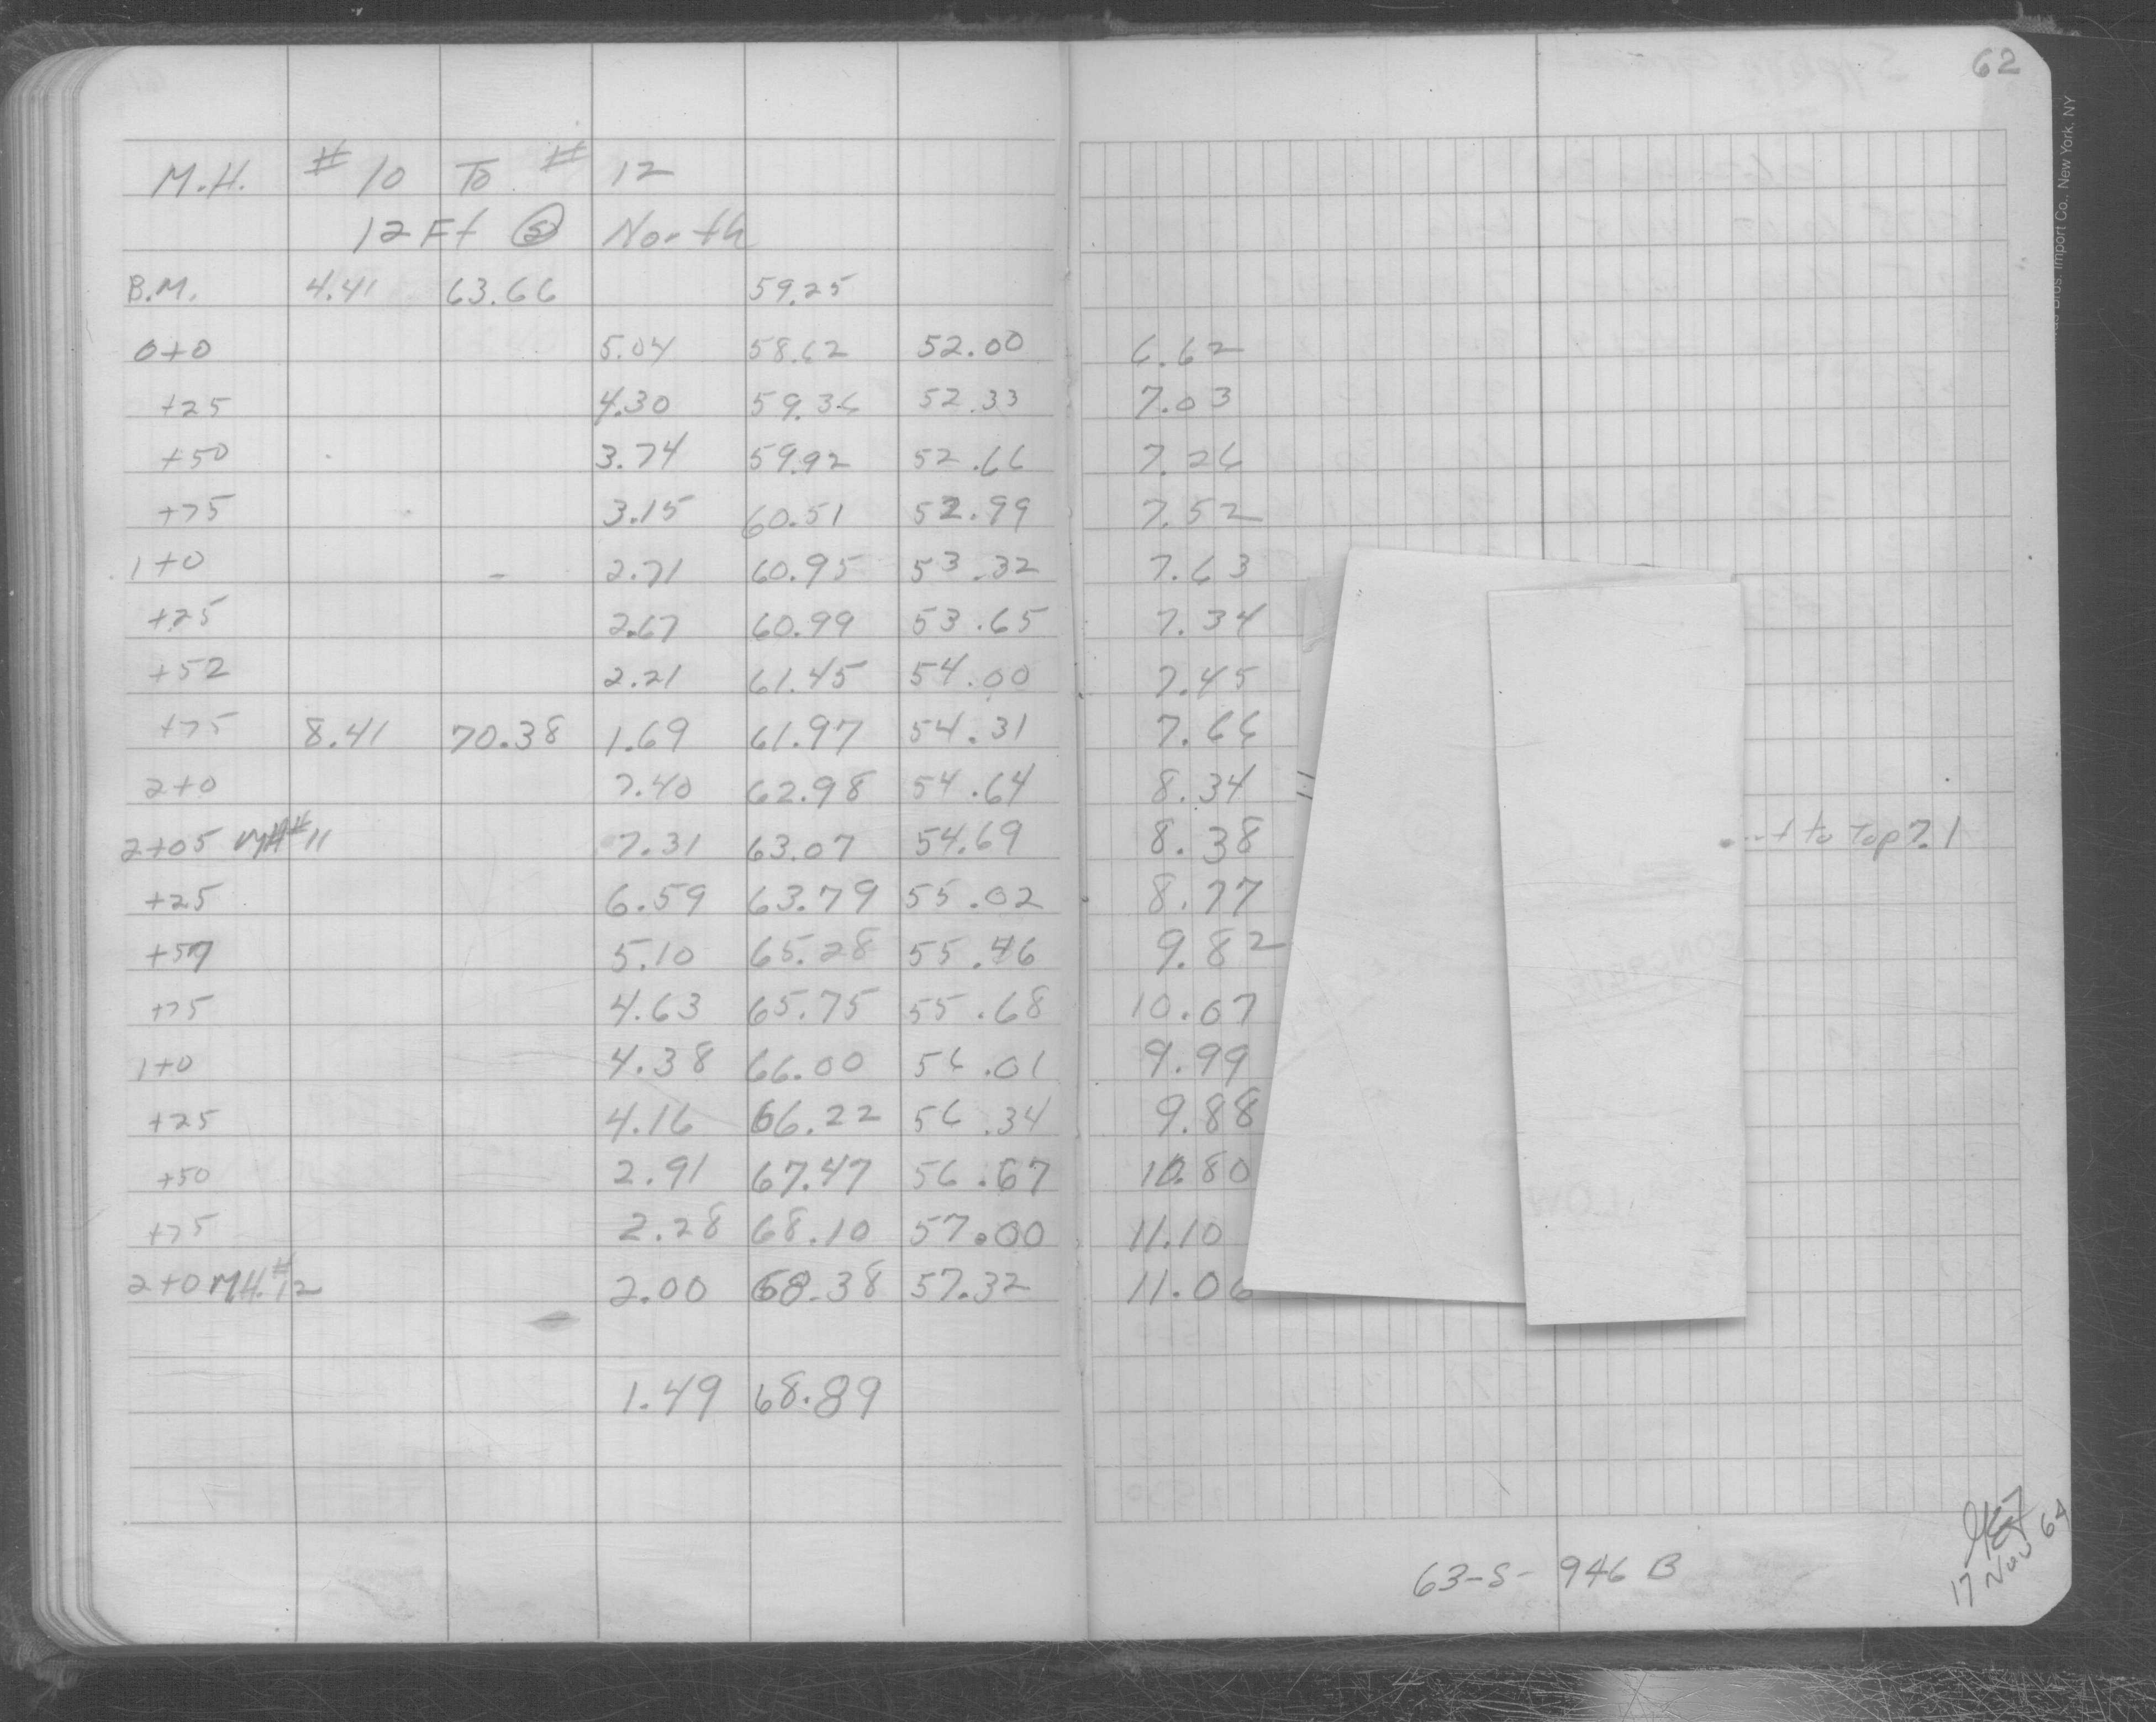 62
M.H. # 10 To # 12
12 Ft North
B.M. 4.41 63.66 59.25
0+0 5.04 58.62 52.00 6.62
+25 4.30 59.36 52.33 7.03
+50 3.74 59.92 52.66 7.26
+75 3.15 60.51 52.99 7.52
1+0 2.71 60.95 53.32 7.63
+25 2.67 60.99 53.65 7.34
+52 2.21 61.45 54.00 7.45
+75 8.41 70.38 1.69 61.97 54.31 7.66
2+0 7.40 62.98 54.64 8.34
2+05 MH#11 7.31 63.07 54.69 8.38 to Top 7.1
+25 6.59 63.79 55.02 8.77
+57 5.10 65.28 55.46 9.82
+75 4.63 65.75 55.68 10.07
1+0 4.38 66.00 56.01 9.99
+25 4.16 66.22 56.34 9.88
+50 2.91 67.47 56.67 10.80
+75 2.28 68.10 57.00 11.10
2+0 MH.#12 2.00 68.38 57.32 11.06
1.49 68.89
63-S-946 B
17 Nov 64
Bros. Import Co., New York, NY